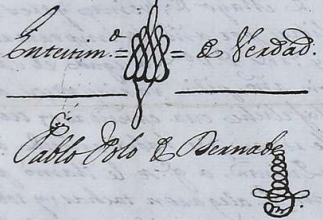 En testim.º = = de Verdad.
Pablo Polo de Bernabe